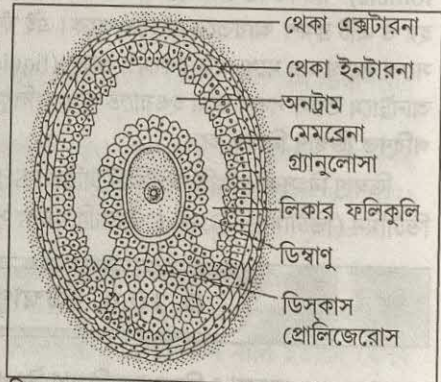 থেকা এক্সটারনা
থেকা ইনটারনা
অনট্রাম
মেমব্রেনা
গ্র্যানুলোসা
লিকার ফলিকুলি
ডিম্বাণু
ডিস্‌কাস
প্রোলিজেরোস